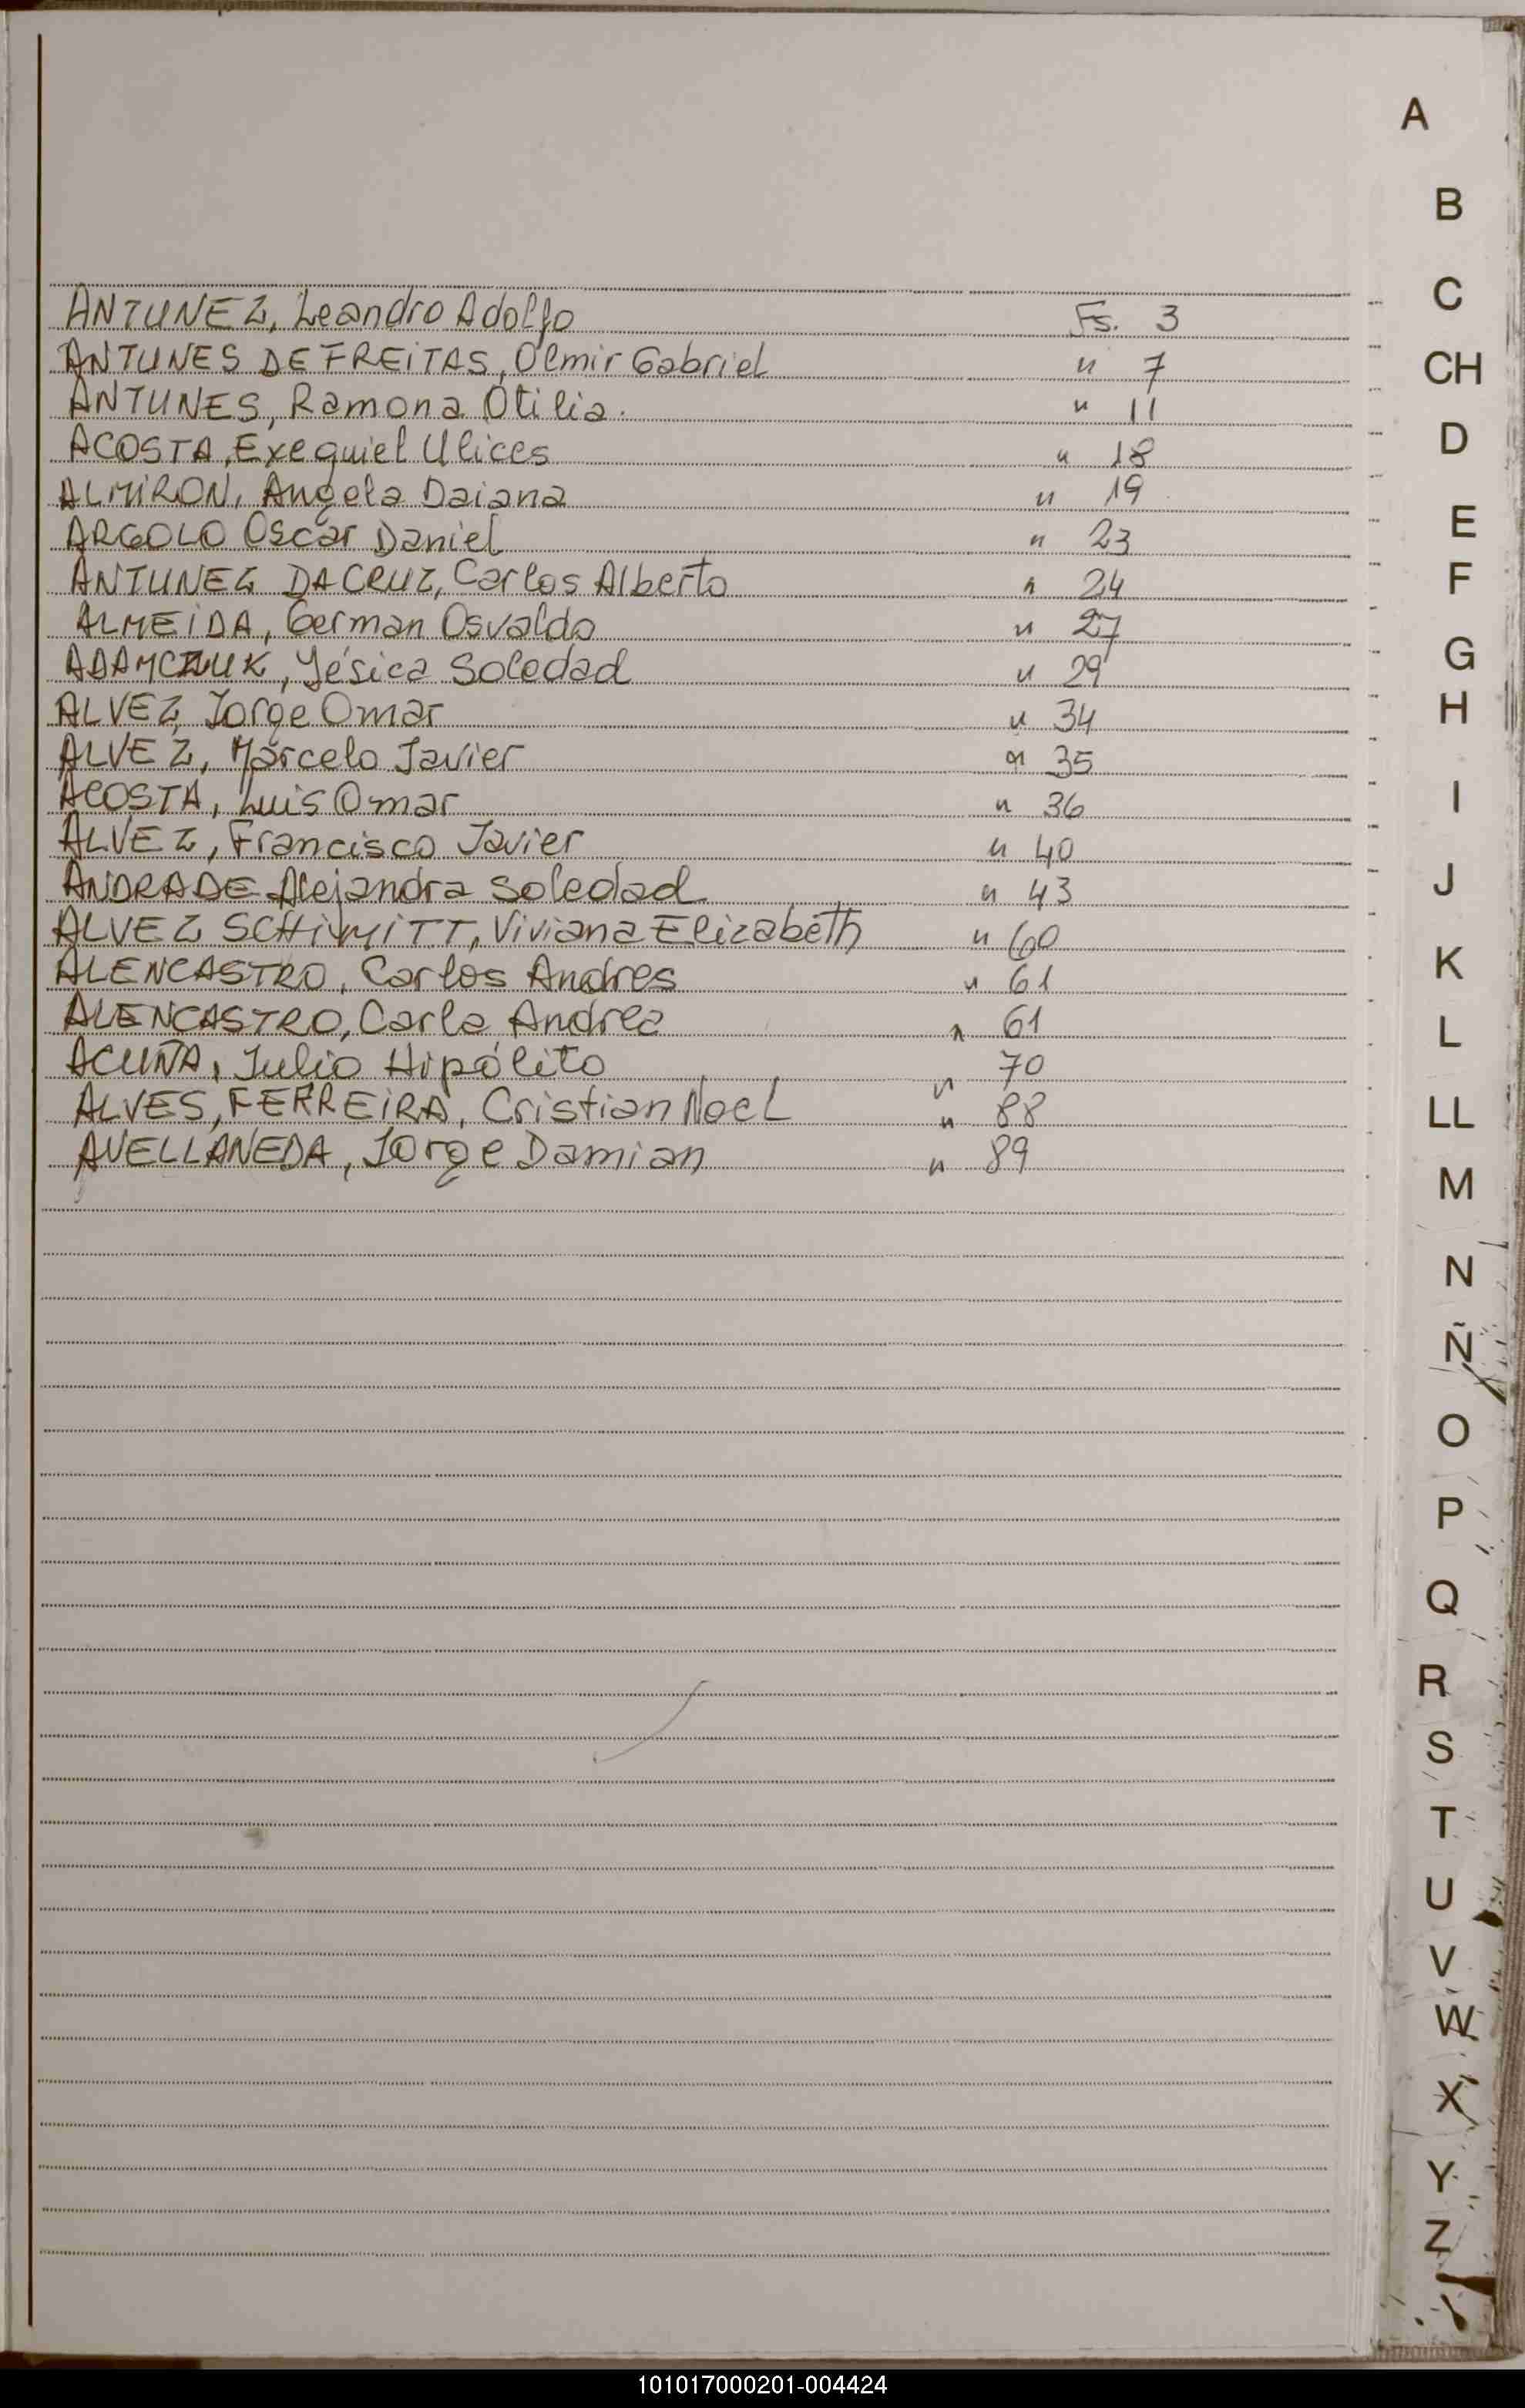 ANTUNEZ, Leandro Adolfo Fs. 3
ANTUNES DE FREITAS, Olmir Gabriel " 7
ANTUNES, Ramona Otilia. " 11
ACOSTA, Exequiel Ulices " 18
ALMIRON, Angela Daiana " 19
ARGOLO Oscar Daniel " 23
ANTUNEZ DA CRUZ, Carlos Alberto " 24
ALMEIDA, German Osvaldo " 27
ADAMCZUK, Yésica Soledad " 29
ALVEZ, Jorge Omar " 34
ALVEZ, Marcelo Javier " 35
ACOSTA, Luis Omar " 36
ALVEZ, Francisco Javier " 40
ANDRADE Alejandra Soledad " 43
ALVEZ SCHIMITT, Viviana Elizabeth " 60
ALENCASTRO, Carlos Andres " 61
ALENCASTRO, Carla Andrea " 61
ACUÑA, Julio Hipólito " 70
ALVES, FERREIRA, Cristian Noel " 88
AVELLANEDA, Jorge Damian " 89
A
B
C
CH
D
E
F
G
H
I
J
K
L
LL
M
N
Ñ
O
P
Q
R
S
T
U
V
W
X
Y
Z
101017000201-004424